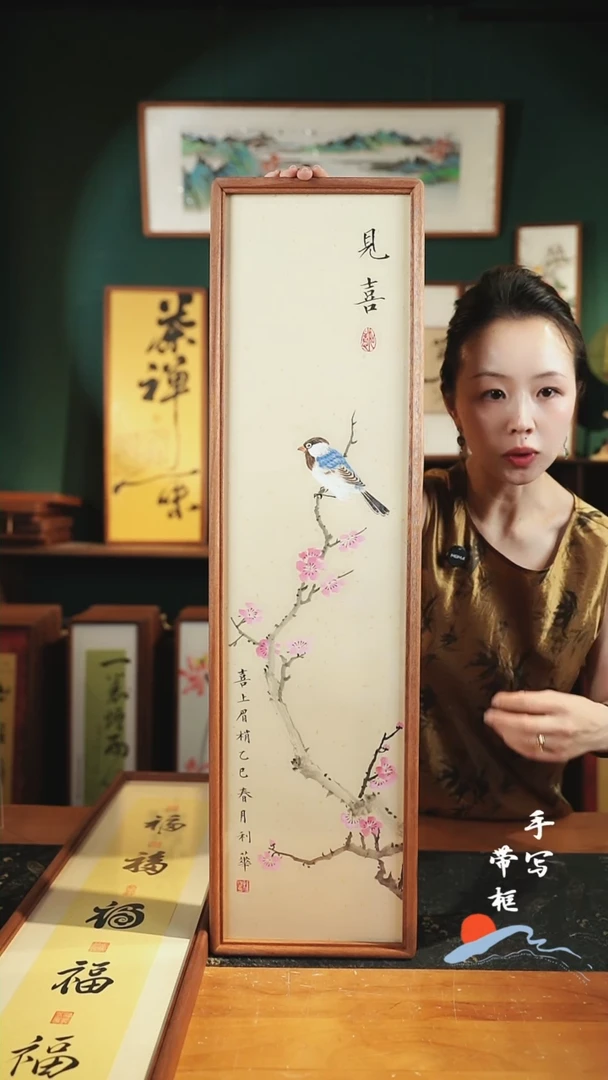 見喜
喜上眉梢乙巳春月利華
茶禅一味
福
福
福
福
福
手写
带框